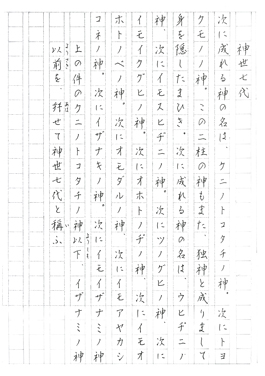 神世七代
次に成れる神の名は、クニノトコタチノ神。次にトヨ
クモノノ神。この二柱の神もまた、独神と成りまして
身を隠したまひき。次に成れる神の名は、ウヒヂニノ
神。次にイモスヒヂニノ神。次にツノグヒノ神。次に
イモイクグヒノ神。次にオホトノヂノ神。次にイモオ
ホトノベノ神。次にオモダルノ神。次にイモアヤカシ
コネノ神。次にイザナキノ神。次にイモイザナミノ神
上の件のクニノトコタチノ神以下、イザナミノ神
以前を、幷せて神世七代と稱ふ。